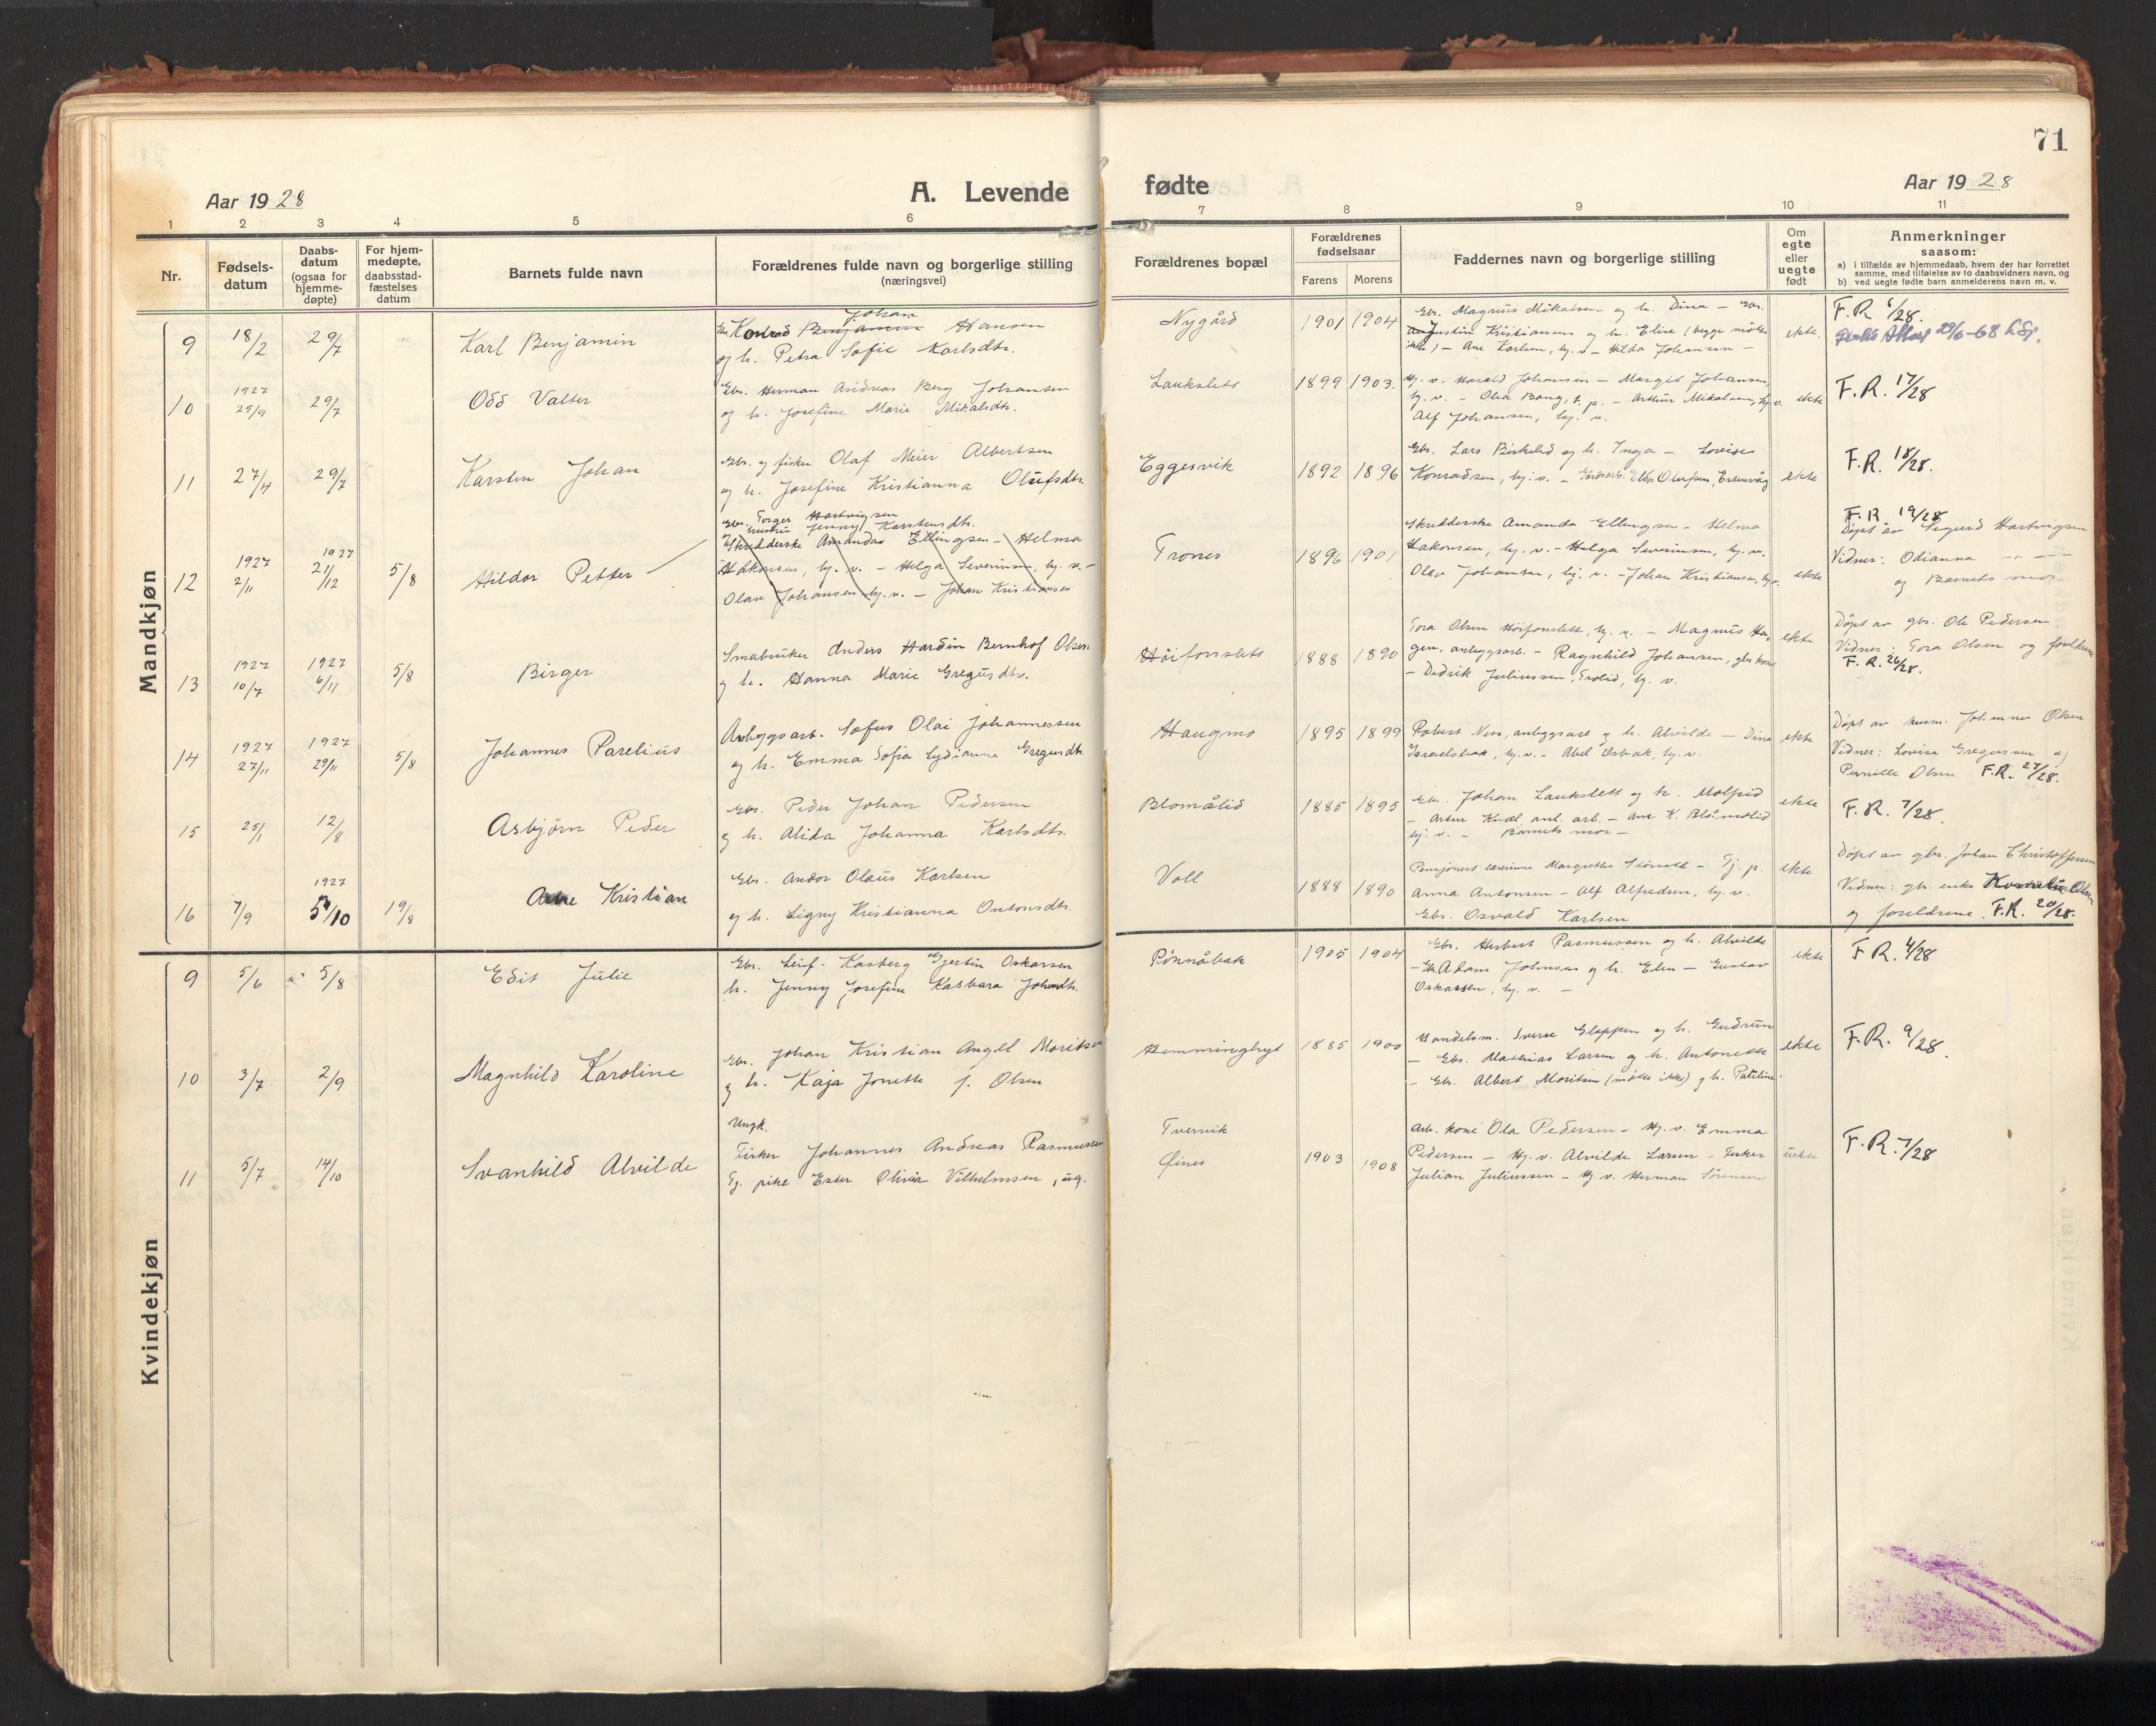 71
Aar 1928
A. Levende
fødte
Aar 1928
1 2 3 4 5 6 7 8 9 10 11
Nr.
Fødsels-
datum
Daabs-
datum
(ogsaa for
hjemme-
døpte)
For hjem-
medøpte,
daabsstad-
fæstelses
datum
Barnets fulde navn
Forældrenes fulde navn og borgerlige stilling
(næringsvei)
Forældrenes bopæl
Forældrenes
fødselsaar
Farens Morens
Faddernes navn og borgerlige stilling
Om
egte
eller
uegte
født
Anmerkninger
saasom:
a) i tilfælde av hjemmedaab, hvem der har forrettet
samme, med tilføielse av to daabsvidners navn, og
b) ved uegte fødte barn anmelderens navn m. v.
Mandkjøn
9 18/2 29/7 Karl Benjamin
Johan
Konrad Benjamin Hansen
og h. Petra Sofie Karlsdtr.
Nygård 1901 1904
Gbr. Magnus Mikalsen og h. Dina – Gbr.
Augustin Kristiansen og h. Elise (begge møtte
ikke) – Ane Karlsen, hj. v – Hilda Johansen –
ekte.
F.R. 6/28.
29/6-68
10 1927 25/9 29/7 Odd Valter
Gbr. Herman Andreas Berg Johansen
og h. Josefine Marie Mikalsdtr.
Laukslett 1899 1903.
Hj. v. Harald Johansen – Margit Johansen,
hj. v. – Olea Bang, t. p. – Arthur Mikalsen, hj. v.
Alf Johansen, hj. v.
ekte
F.R. 17/28
11 27/4 29/7 Karsten Johan
Gbr. og fisker Olaf Meier Albertsen
og h. Josefine Kristianna Olufsdtr.
Eggesvik 1892 1896
Gbr. Lars Birkelid og h. Inga – Lovise
Konradsen, hj. v. – Gårdsarb. Elias Olufsen, Ertenvåg
ekte
F.R. 18/28.
12 1927 2/11 1927 21/12 5/8 Hildor Petter
Gbr. Torger Hartvigsen
hustru Jenny Karstensdtr.
Skredderske Amanda Ellingsen – Helma
Håkonsen, hj. v. – Helga Severinsen, hj. v. –
Olav Johansen hj. v. – Johan Kristiansen
Trones 1896 1901
Skredderske Amanda Ellingsen – Helma
Hakonsen, hj. v. – Helga Severinsen, hj. v.
Olav Johansen, hj. v. – Johan Kristiansen, hj. v.
ekte
F.R. 19/28
Döpt av Sigurd Hartvigsen
Vidner: Odianna
og Barnets mor
13 1927 10/7 1927 6/11 5/8 Birger
Småbruker Anders Hardin Bernhof Olsen
og h. Hanna Marie Gregusdtr.
Höiforsslett 1888 1890
Tora Olsen Höiforsslett, hj. v. – Magnus Ha-
gen, anleggsarb. – Ragnhild Johansen, gbr kone
– Didrik Juliussen, Trolid, hj. v.
ekte
Döpt av gbr. Ole Pedersen
Vidner: Tora Olsen og foreldrene
F. R. 26/28.
14 1927 27/11 1927 29/11 5/8 Johannes Parelius
Anleggsarb. Sofus Olai Johannessen
og h. Emma Sofia Lydianna Gregusdtr.
Haugmo 1895 1899
Robert Nos, anleggsarb og h. Alvilde – Dina
Israelsbak, hj. v. – Abel Osbak, hj. v.
ekte
Döpt av husm. Johannes Olsen
Vidner: Lovise Gregussen og
Pernille Olsen F.R. 27/28.
15 25/1 12/8 Asbjörn Peder
Gbr. Peder Johan Pedersen
og h. Alida Johanna Karlsdtr.
Blomålid 1885 1895
Gbr. Johan Laukslett og h. Molfrid
– Artur Kval, anl. arb. – Ane K. Blåmolid
hj. v. – Barnets mor –
ekte
F.R. 7/28.
16 7/9 1927 5/10 19/8 Arne Kristian
Gbr. Andor Olaus Karlsen
og h. Signy Kristianna Antonsdtr.
Voll 1888 1890
Pensjonert lærerinne Margrethe – Tj. p.
Anna Antonsen – Alf Alfredsen, hj. v.
Gbr. Osvald Karlsen
ekte
Döpt av gbr. Johan Christoffersen
Vidner: gb. enke Kornelie Olsen
og foreldrene. F.R. 20/28.
Kvindekjøn
9 5/6 5/8 Edit Julie
Gbr. Leif Kasberg Gjertin Oskarsen
h. Jenny Josefine Kasbara Johansdtr.
Rönnåbak 1905 1904
Gbr. Herbert Rasmussen og h. Alvilde
– Gbr. Adam Johnsen og h. Elen – Gustav
Oskarsen, hj. v. –
ekte
F R. 4/28
10 3/7 2/9 Magnhild Karoline
Gbr. Johan Kristian Angel Moritsen
og h. Kaja Jonette f. Olsen
Hemminghyt 1885 1900
Handelsm. Sverre Gleppen og h. Gudrun
– Gbr. Mathias Larsen og h. Antonette
– Gbr. Albert Moritsen (møtte ikke) og h. Petrine.
ekte
F.R. 9/28.
11 5/7 14/10 Svanhild Alvilde
Ungk.
Fisker Johannes Andreas Rasmussen
Tj. pike Ester Olivia Vilhelmsen, ug.
Tverrvik
Øines
1903 1908
Arb. kone Ola Pedersen – Hj. v. Emma
Pedersen – Hj. v. Alvilde Larsen – Fisker
Julian Juliussen – Hj. v. Herman Sörensen
uekte
F.R. 7/28